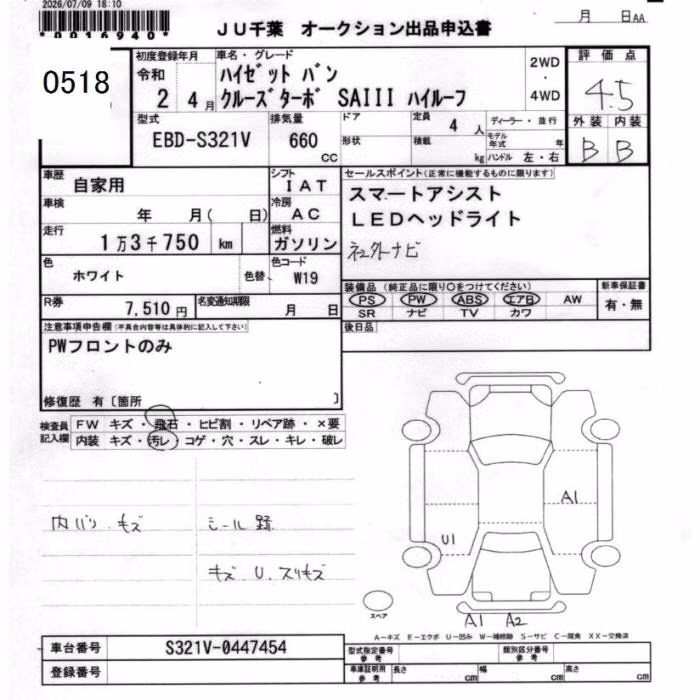 2026/07/09 18:10
*0016940*
JU千葉 オークション出品申込書
月 日AA
0518
初度登録年月
令和
2年 4月
車名・グレード
ハイゼット バン
クルーズターボ SAIII ハイルーフ
2WD
・
4WD
評価点
4.5
外装 内装
B B
型式
EBD-S321V
排気量
660
cc
ドア
形状
定員
4人
積載
kg
ディーラー・並行
モデル年式 年
ハンドル 左・右
車歴
自家用
シフト
IAT
車検
年 月( 日)
冷房
AC
走行
1万3千750 km
燃料
ガソリン
色
ホワイト
色替
色コード
W19
R券
7,510円
名変通知期限
月 日
セールスポイント(正常に機能するものに限ります)
スマートアシスト
LEDヘッドライト
社外ナビ
装備品 (純正品に限り○をつけてください)
PS PW ABS エアB AW
SR ナビ TV カワ
新車保証書
有・無
後日品
注意事項申告欄(不具合内容等は具体的に記入して下さい)
PWフロントのみ
修復歴 有〔箇所 〕
検査員
記入欄
FW キズ・飛石・ヒビ割・リペア跡・×要
内装 キズ・汚レ・コゲ・穴・スレ・キレ・破レ
内バリ キズ
シール跡
キズ、U、スリキズ
A1
U1
A1 A2
スペア
A-キズ E-エクボ U-凹み W-補修跡 S-サビ C-腐食 XX-交換済
車台番号
S321V-0447454
登録番号
型式指定番号
参考
類別区分番号
参考
車庫証明用
参考
長さ cm
幅 cm
高さ cm